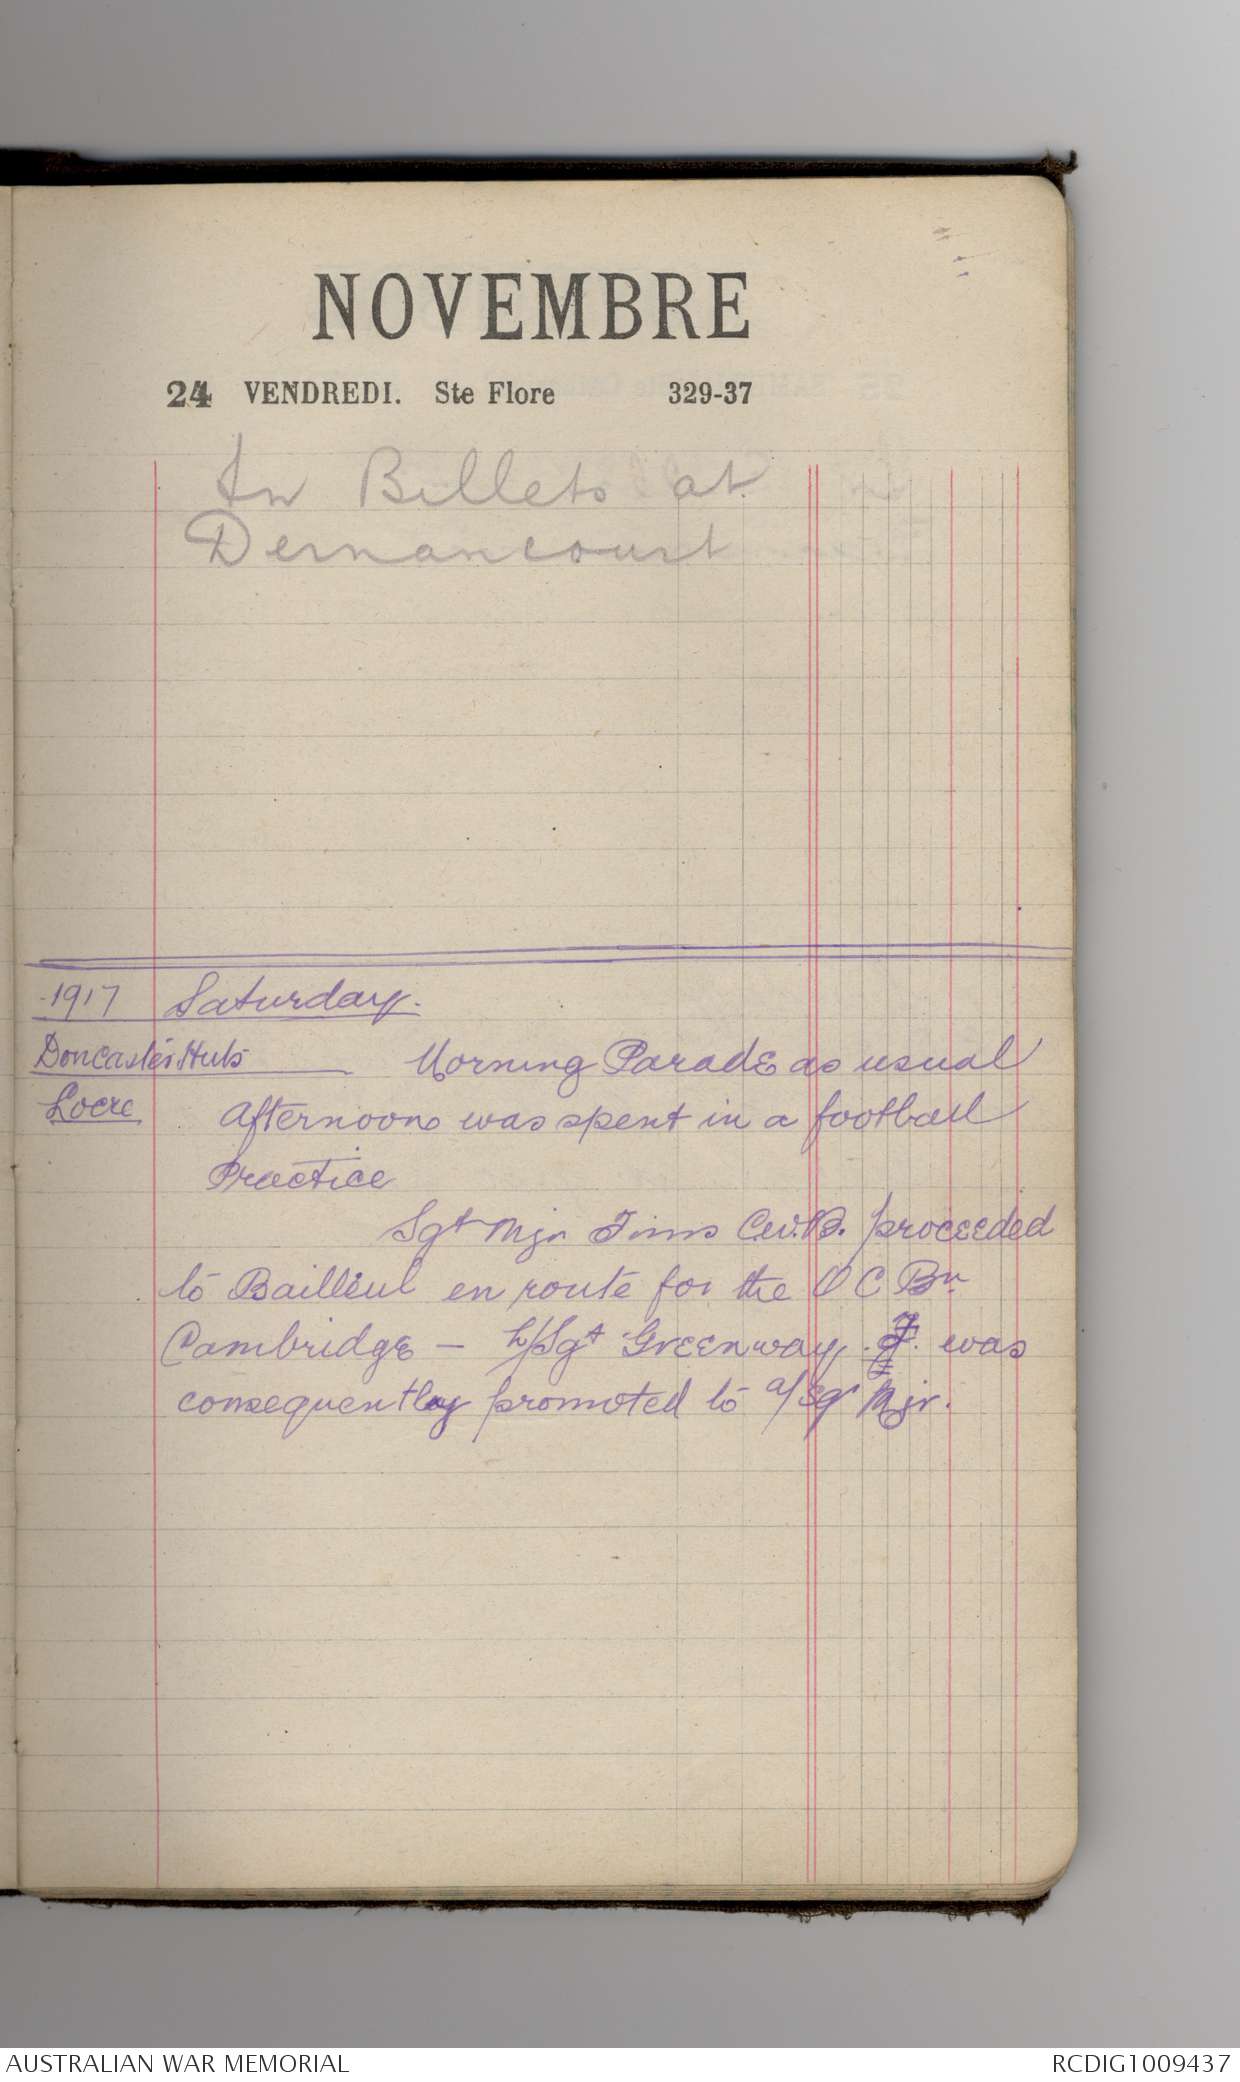 NOVEMBRE
24 VENDREDI. Ste Flore 329-37
In Billets at
Dernancourt
1917 Saturday.
Doncaster Huts Morning Parade as usual
Locre Afternoon was spent in a football
Practice
Sgt Mjr Tims C.W.B. proceeded
to Bailleul en route for the O C Bn
Cambridge - L/Sgt Greenway. was
consequently promoted to a/Sgt Mjr.
AUSTRALIAN WAR MEMORIAL
RCDIG1009437